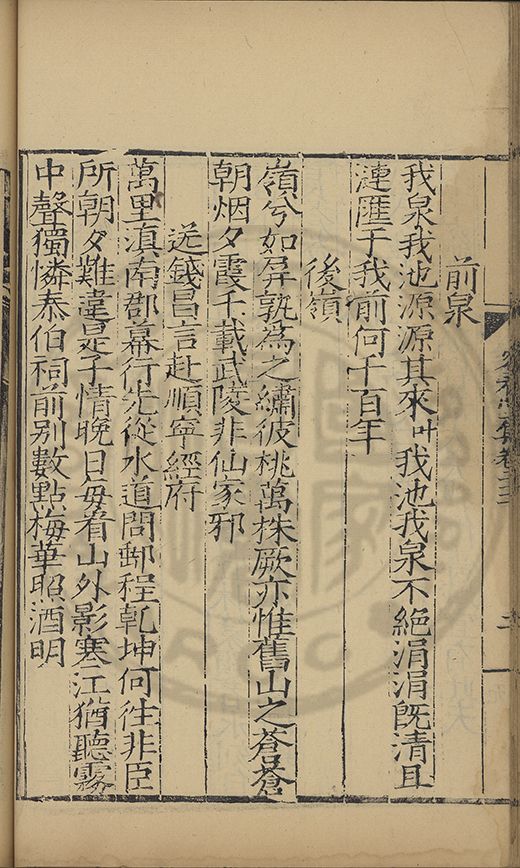 前泉
我泉我池源源其來叫我池我泉不絕涓涓旣清且
漣匯于我前何千百年
後嶺
嶺兮如屏孰為之繡彼桃萬株厥亦惟舊山之蒼蒼
朝烟夕霞千載武陵非仙家邪
送錢昌言赴順寧經府
萬里滇南郡幕行先從水道問郵程乹坤何徃非臣
所朝夕難違是子情晚日每看山外影寒江猶聽霧
中聲獨憐泰伯祠前别數點梅華照酒明